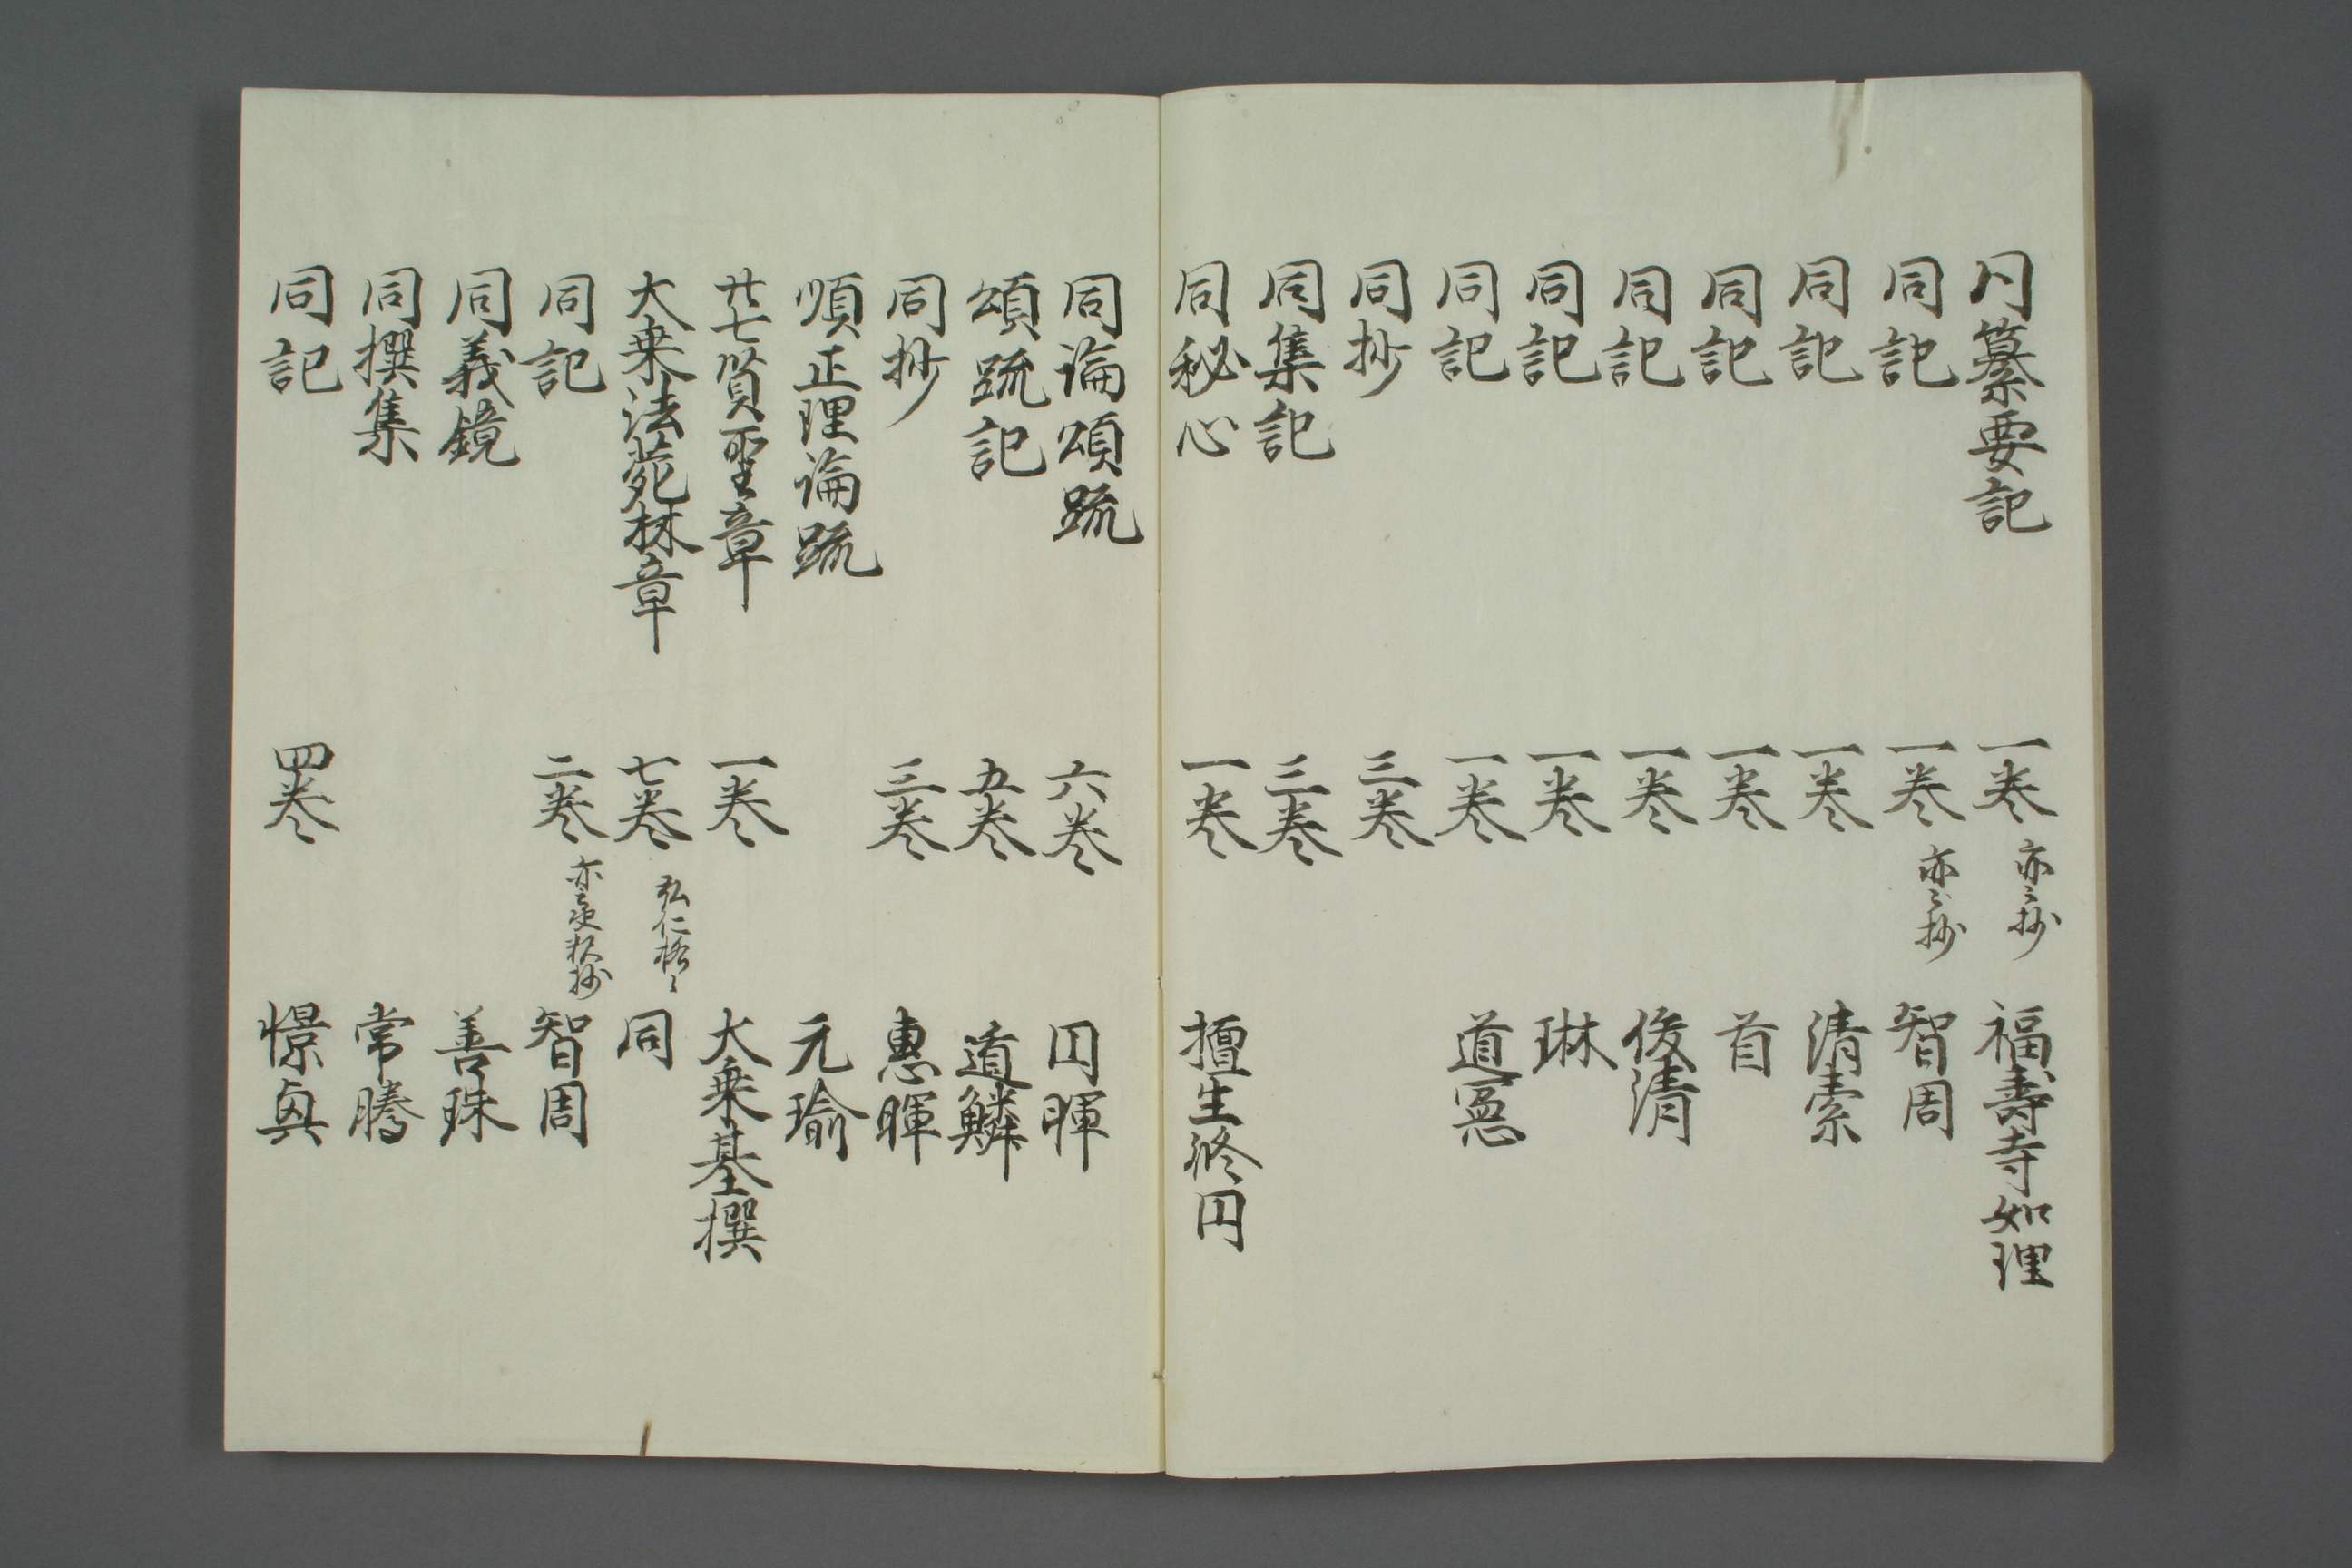 同纂要記 一巻 亦云抄 福壽寺如理
同記 一巻 亦云抄 智周
同記 一巻 清素
同記 一巻 首
同記 一巻 俊清
同記 一巻 琳
同記 一巻 道憲
同抄 三巻
同集記 三巻
同秘心 一巻 擅生修円
同論頌䟽 六巻 円暉
頌䟽記 五巻 道鱗
同抄 三巻 惠暉
順正理論䟽 元瑜
廿七賢聖章 一巻 大乗基撰
大乗法苑林章 七巻 同
同記 二巻 智周
同義鏡 善珠
同撰集 常騰
同記 四巻 憬興